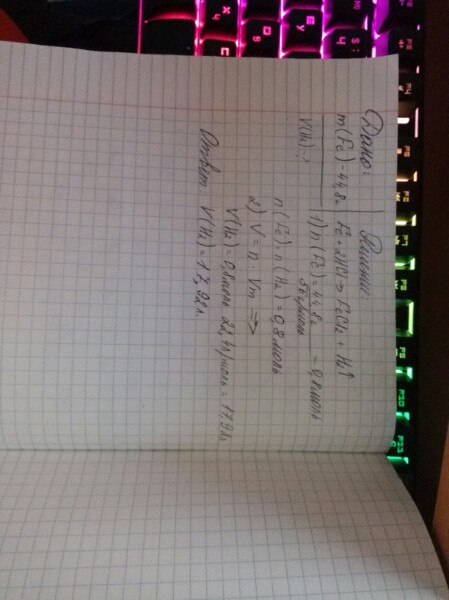 Дано: Решение:
m(Fe)-44,8г Fe+2HCl→FeCl2+H2↑
V(H2)-? 1) n(Fe)=44,8г/56г/моль=0,8моль
n(Fe)=n(H2)=0,8моль
2) V=n·Vm=>
V(H2)=0,8моль·22,4л/моль=17,92л.
Ответ V(H2)=17,92л.